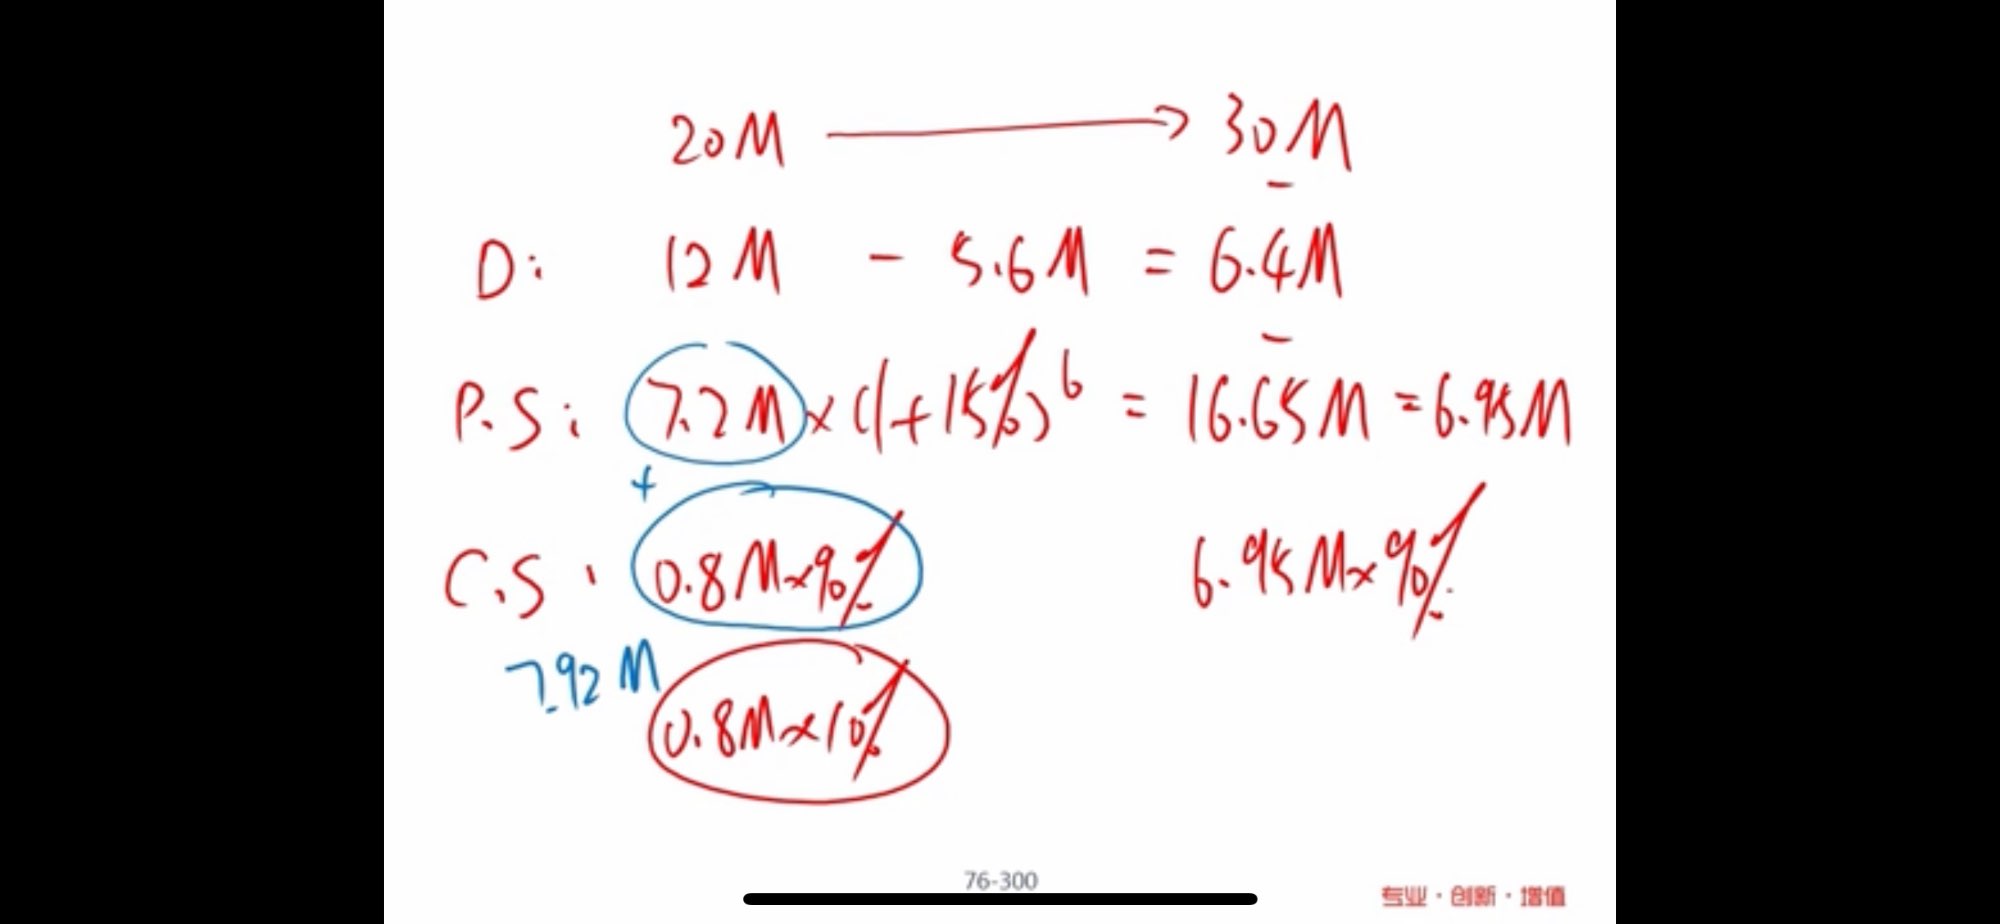 20M → 30M
-
D: 12M - 5.6M = 6.4M
-
P.S: 7.2M × (1+15%)^6 = 16.65M = 6.95M
+
C.S: 0.8M×90% 6.95M×90%
7.92M
0.8M×10%
76-300
专业·创新·增值